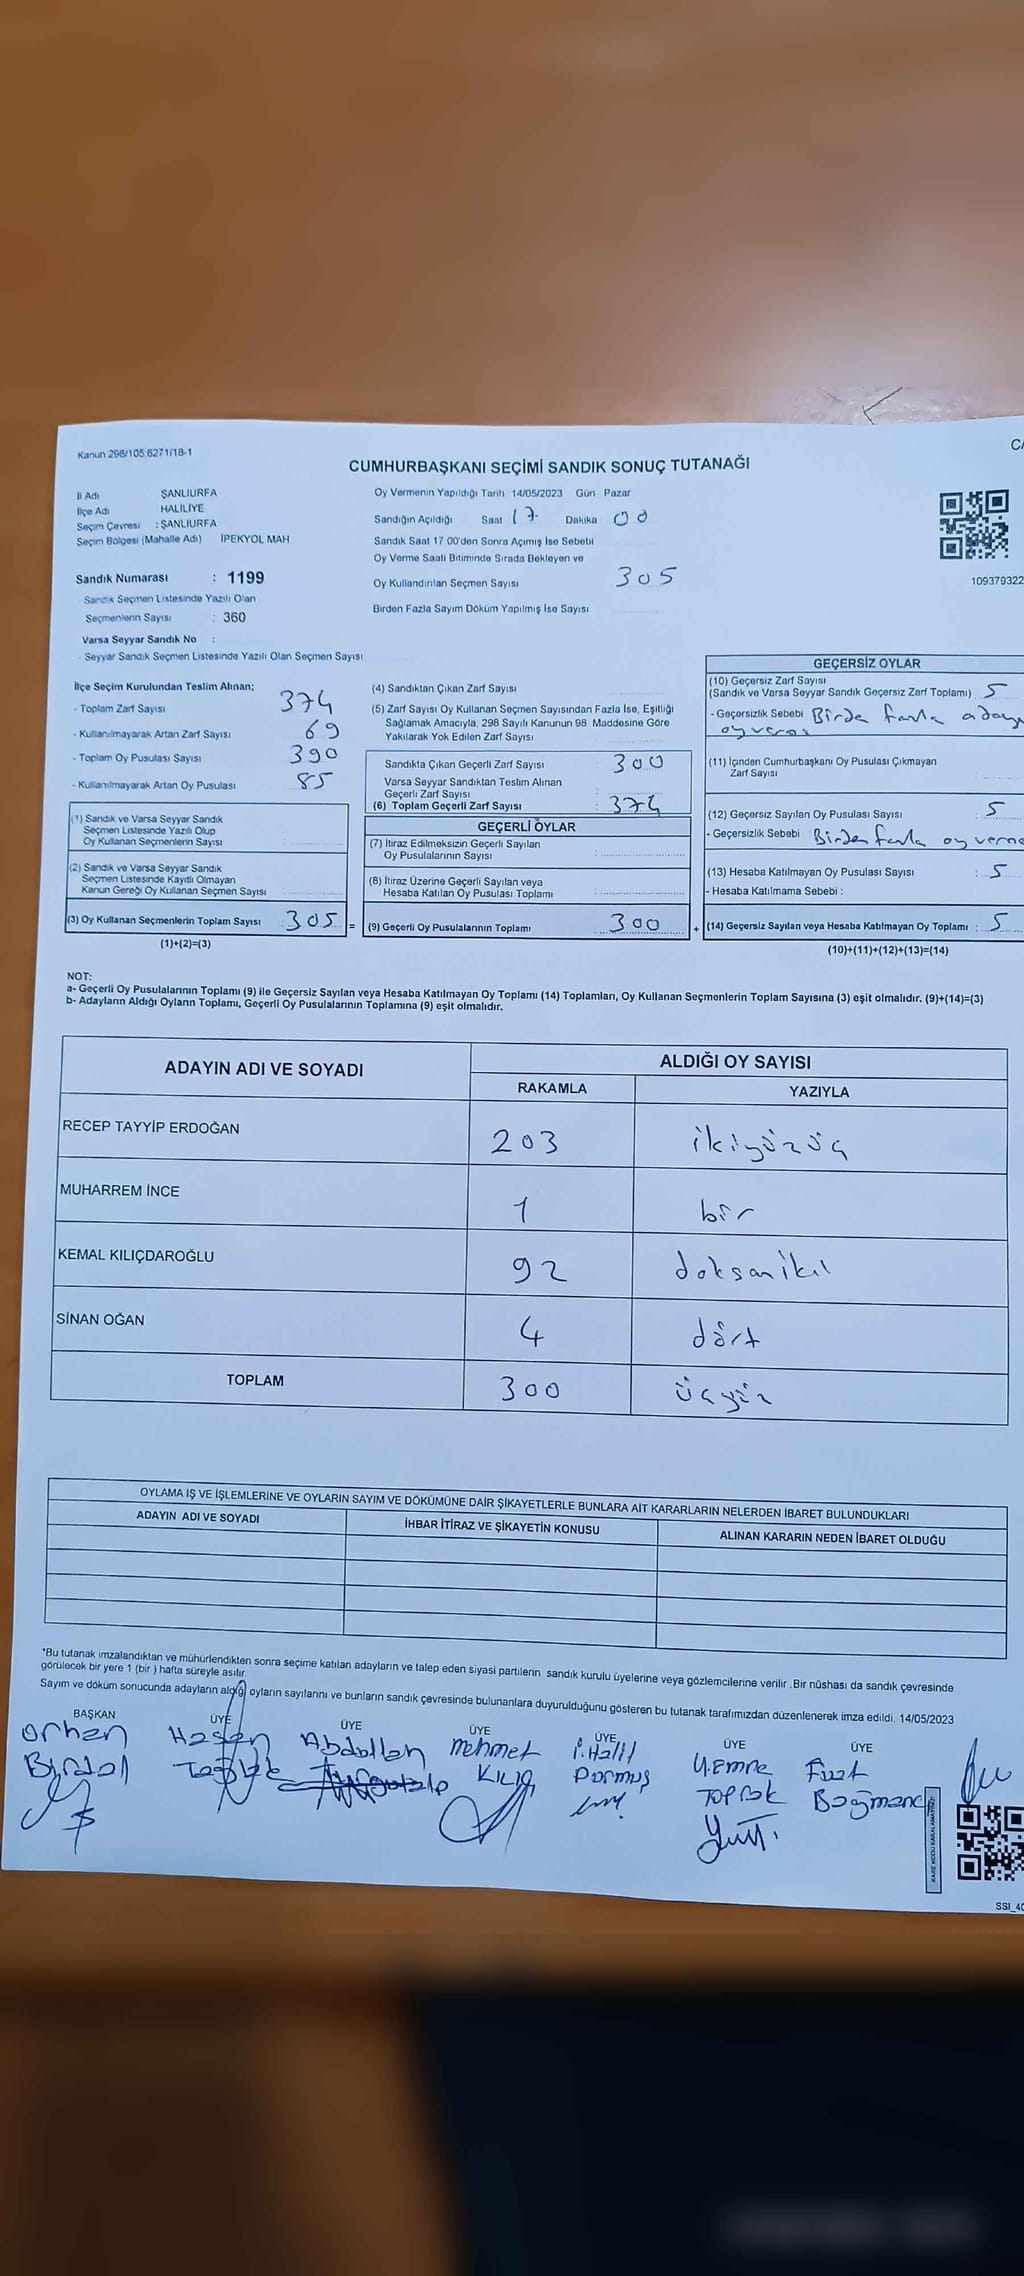 Kanun 298/105.6271/18-1
CUMHURBAŞKANI SEÇİMİ SANDIK SONUÇ TUTANAĞI
İl Adı ŞANLIURFA
İlçe Adı HALİLİYE
Seçim Çevresi : ŞANLIURFA
Seçim Bölgesi (Mahalle Adı) İPEKYOL MAH
Sandık Numarası : 1199
Sandık Seçmen Listesinde Yazılı Olan
Seçmenlerin Sayısı : 360
Varsa Seyyar Sandık No :
- Seyyar Sandık Seçmen Listesinde Yazılı Olan Seçmen Sayısı
Oy Vermenin Yapıldığı Tarih 14/05/2023 Gün Pazar
Sandığın Açıldığı Saat 17 Dakika 00
Sandık Saat 17:00'den Sonra Açımış İse Sebebi
Oy Verme Saati Bitiminde Sırada Bekleyen ve
Oy Kullandırılan Seçmen Sayısı 305
Birden Fazla Sayım Döküm Yapılmış İse Sayısı
109379322
İlçe Seçim Kurulundan Teslim Alınan;
- Toplam Zarf Sayısı 374
- Kullanılmayarak Artan Zarf Sayısı 69
- Toplam Oy Pusulası Sayısı 390
- Kullanılmayarak Artan Oy Pusulası 85
(1) Sandık ve Varsa Seyyar Sandık
Seçmen Listesinde Yazılı Olup
Oy Kullanan Seçmenlerin Sayısı
(2) Sandık ve Varsa Seyyar Sandık
Seçmen Listesinde Kayıtlı Olmayan
Kanun Gereği Oy Kullanan Seçmen Sayısı
(3) Oy Kullanan Seçmenlerin Toplam Sayısı 305 =
(1)+(2)=(3)
(4) Sandıktan Çıkan Zarf Sayısı
(5) Zarf Sayısı Oy Kullanan Seçmen Sayısından Fazla İse, Eşitliği
Sağlamak Amacıyla, 298 Sayılı Kanunun 98. Maddesine Göre
Yakılarak Yok Edilen Zarf Sayısı
Sandıkta Çıkan Geçerli Zarf Sayısı 300
Varsa Seyyar Sandıktan Teslim Alınan
Geçerli Zarf Sayısı :
(6) Toplam Geçerli Zarf Sayısı : 374
GEÇERLİ OYLAR
(7) İtiraz Edilmeksizin Geçerli Sayılan
Oy Pusulalarının Sayısı :
(8) İtiraz Üzerine Geçerli Sayılan veya
Hesaba Katılan Oy Pusulası Toplamı :
(9) Geçerli Oy Pusulalarının Toplamı 300 +
GEÇERSİZ OYLAR
(10) Geçersiz Zarf Sayısı
(Sandık ve Varsa Seyyar Sandık Geçersiz Zarf Toplamı) 5
- Geçersizlik Sebebi Birden fazla
oy verme
(11) İçinden Cumhurbaşkanı Oy Pusulası Çıkmayan
Zarf Sayısı
(12) Geçersiz Sayılan Oy Pusulası Sayısı : 5
- Geçersizlik Sebebi : Birden fazla oy verme
(13) Hesaba Katılmayan Oy Pusulası Sayısı : 5
- Hesaba Katılmama Sebebi :
(14) Geçersiz Sayılan veya Hesaba Katılmayan Oy Toplamı : 5
(10)+(11)+(12)+(13)=(14)
NOT:
a- Geçerli Oy Pusulalarının Toplamı (9) ile Geçersiz Sayılan veya Hesaba Katılmayan Oy Toplamı (14) Toplamları, Oy Kullanan Seçmenlerin Toplam Sayısına (3) eşit olmalıdır. (9)+(14)=(3)
b- Adayların Aldığı Oyların Toplamı, Geçerli Oy Pusulalarının Toplamına (9) eşit olmalıdır.
ADAYIN ADI VE SOYADI ALDIĞI OY SAYISI
RAKAMLA YAZIYLA
RECEP TAYYİP ERDOĞAN 203 ikiyüzüç
MUHARREM İNCE 1 bir
KEMAL KILIÇDAROĞLU 92 doksaniki
SİNAN OĞAN 4 dört
TOPLAM 300 üçyüz
OYLAMA İŞ VE İŞLEMLERİNE VE OYLARIN SAYIM VE DÖKÜMÜNE DAİR ŞİKAYETLERLE BUNLARA AİT KARARLARIN NELERDEN İBARET BULUNDUKLARI
ADAYIN ADI VE SOYADI İHBAR İTİRAZ VE ŞİKAYETİN KONUSU ALINAN KARARIN NEDEN İBARET OLDUĞU
*Bu tutanak imzalandıktan ve mühürlendikten sonra seçime katılan adayların ve talep eden siyasi partilerin sandık kurulu üyelerine veya gözlemcilerine verilir .Bir nüshası da sandık çevresinde
görülecek bir yere 1 (bir ) hafta süreyle asılır.
Sayım ve döküm sonucunda adayların aldığı oyların sayılarını ve bunların sandık çevresinde bulunanlara duyurulduğunu gösteren bu tutanak tarafımızdan düzenlenerek imza edildi. 14/05/2023
BAŞKAN ÜYE ÜYE ÜYE ÜYE ÜYE ÜYE
Orhan Hasan Abdullah Mehmet İ.Halil Y.Emre Fuat
Birdal Kılıç Durmuş Toprak
KARE KODU KARALAMAYINIZ!